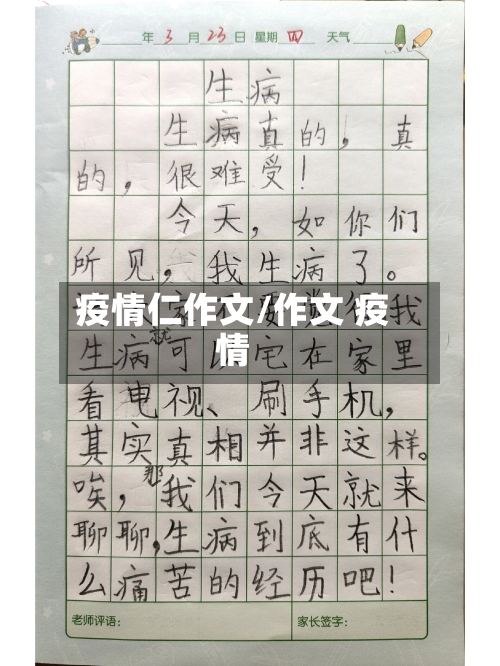 年 3 月 23 日 星期 四 天气
生病
生病真的，真
的，很难受！
今天，如你们
所见，我生病了。
疫情仁作文/作文 疫
情
我
生病就可以宅在家里
看电视、刷手机，
其实真相并非这样。
唉，那我们今天就来
聊聊，生病到底有什
么痛苦的经历吧！
老师评语： 家长签字：